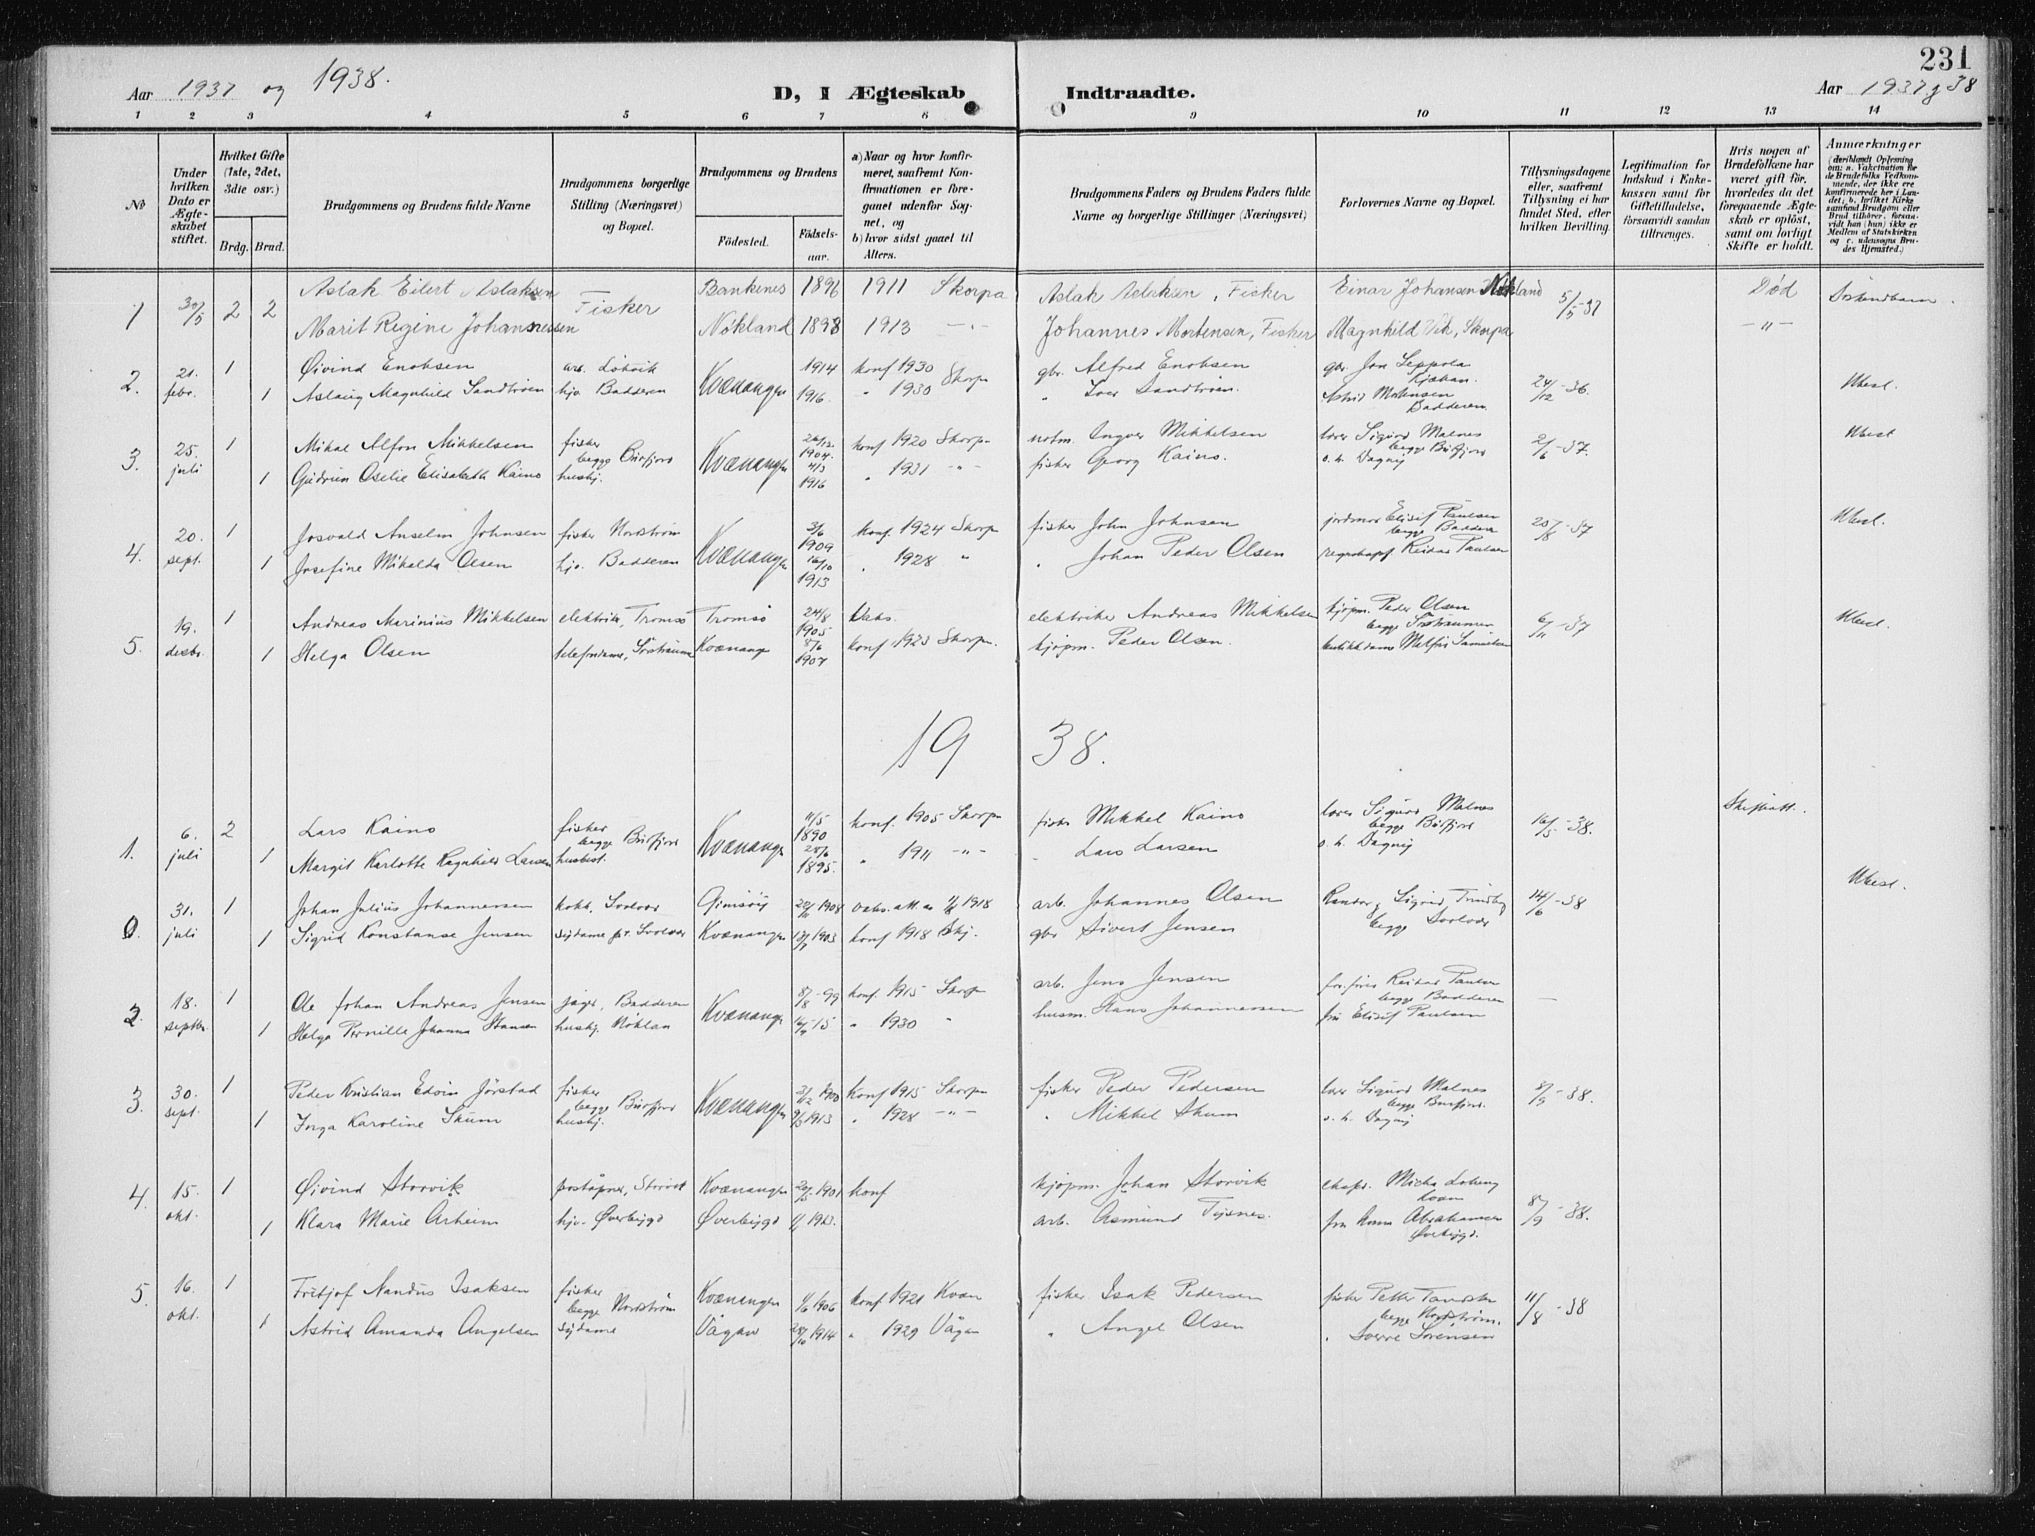 231
Aar 1937 og 1938.
D, I Ægteskab Indtraadte.
Aar 1937 38
1 2 3 4 5 6 7 8 9 10 11 12 13 14
No
Under hvilken Dato er Ægteskabet stiftet.
Hvilket Gifte (1ste, 2det, 3die osv.)
Brdg. Brud.
Brudgommens og Brudens fulde Navne
Brudgommens borgerlige Stilling (Næringsvei) og Bopæl.
Brudgommens og Brudens
Fødested. Fødsels-aar.
a) Naar og hvor konfirmeret, saafremt Konfirmationen er foregaaet udenfor Sognet, og
b) hvor sidst gaaet til Alters.
Brudgommens Faders og Brudens Faders fulde Navne og borgerlige Stillinger (Næringsvei)
Forlovernes Navne og Bopæl.
Tillysningsdagene eller, saafremt Tillysning ei har fundet Sted, efter hvilken Bevilling.
Legitimation for Indskud i Enkekassen samt for Giftetilladelse, forsaavidt saadan tiltrænges.
Hvis nogen af Brudefolkene har været gift før, hvorledes da det foregaaende Ægteskab er opløst, samt om lovligt Skifte er holdt.
Anmærkninger
1 30/5 2 2 Aslak Eilert Aslaksen Fisker Bankenes 1896 1911 Skorpa Aslak Aslaksen, Fisker Einar Johansen Nøkland 5/5-37 Død
Marit Regine Johannessen Nøkland 1898 1913 -"- Johannes Mortensen, Fisker Magnhild Vik, Skorpa -"-
2. 21. febr. 1 Øivind Enoksen arb. Løkvik Kvænangen 1914 konf 1930 Skorpa gbr. Alfred Enoksen gbr. Jon Seppola 24/12-36. Ubesl.
1 Aslaug Magnhild Sandtrøen hjv. Badderen 1916. " 1930 " Iver Sandtrøen. Astrid Mortensen Badderen.
3. 25. juli 1 Mikal Alfon Mikkelsen fisker begge Burfjord Kvænangen 1904 konf 1920 Skorpa notm. Ingver Mikkelsen lærer Sigurd Malnes begge Burfjord 2/6-37. Ubesl
1 Gudrun Oselie Elisabeth Kaino hushj. 4/3 1916 " 1931 -"- fisker Georg Kaino. o. h. Dagny
4. 20. sept. 1 Josvald Anselm Johnsen fisker Nordstrøm Kvænangen 3/6 1909 konf. 1924 Skorpa fisker John Johnsen jordmor Elisif Paulsen begge Badderen 20/8-37 Ubesl.
1 Josefine Mikalda Olsen hjv. Badderen 16/10 1913 " 1928 " " Johan Peder Olsen Reidar Paulsen
5. 19. desbr. 1 Andreas Marinius Mikkelsen elektriker, Tromsø Tromsø 24/8 1905 elektriker Andreas Mikkelsen kjøpm. Peder Olsen begge Sørstraumen 6/11-37 Ubesl.
1 Helga Olsen telefondame, Sørstraumen Kvænangen 8/6 1907 konf 1923 Skorpa. kjøpm. Peder Olsen. butikkdame Malfrid Samuelsen
19 38.
1. 6. juli 2 Lars Kaino fisker begge Burfjord Kvænangen 11/5 1890 konf. 1905 Skorpa fisker Mikkel Kaino lærer Sigurd Malnes begge Burfjord 16/5-38. Skifteatt.
1 Margit Karlotte Ragnhild Larsen husbest. 1895. " 1911 -"- " Lars Larsen o. h. Dagny
31. juli 1 Johan Julius Johannessen kokk, Svolvær Gimsøy 1908 1918 arb. Johannes Olsen Sigrid begge Svolvær 14/6-38 Ubesl.
1 Sigrid Konstanse Jensen sydame Svolvær Kvænangen 1903 konf 1918 Skj. gbr. Sivert Jensen
2. 18. septbr. 1 Ole Johan Andreas Jensen jæger, Badderen Kvænangen 8/8-99 konf. 1915 Skorpa arb. Jens Jensen Reidar Paulsen begge Badderen -
1 Helga Pernille Johanna Hansen hushj. Nøklan -15 " 1930 " husm. Hans Johannessen fru Elisif Paulsen
3. 30. sept. 1 Peder Kristian Edvin Jørstad fisker begge Burfjord Kvænangen 1900 konf 1915 Skorpa fisker Peder Pedersen lærer Sigurd Malnes begge Burfjord. 8/9-38.
1 Inga Karoline Skum hushj. 1913 " 1928 -"- " Mikkel Skum o. h. Dagny
4. 15. okt. 1 Øivind Storvik poståpner, Storvik Kvænangen 1901 konf kjøpm. Johan Storvik 8/9-38.
1 Klara Marie Arheim hjv. Øverbygd Øverbygd 1913. arb. Asmund Tisnes. fru Anna Abrahamsen Øverbygd.
5. 16. okt. 1 Fritjof Nandus Isaksen fisker begge Nordstrøm Kvænangen 1/6 1906 konf 1921 Kvæn fisker Isak Pedersen fisker Petter begge Nordstrøm. 11/8-38
1 Astrid Amanda Angelsen sydame Vågan 1914 " 1929 Vågan " Angel Olsen " Sverre Sørensen